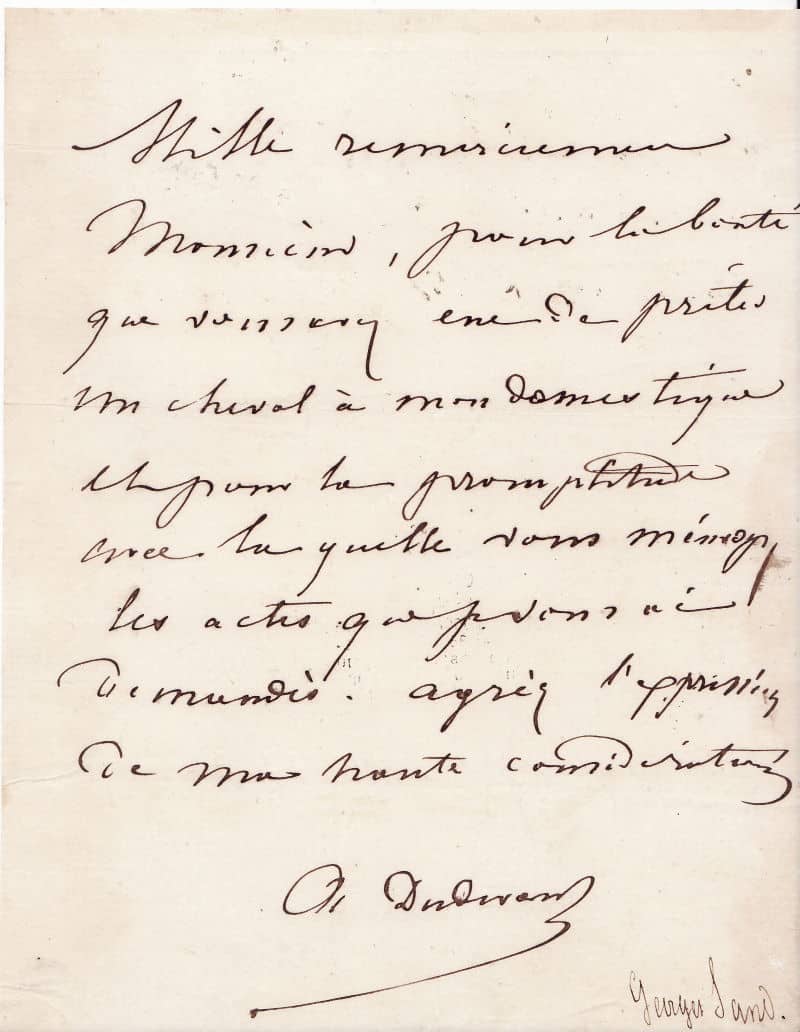 Mille remerciemens
Monsieur, pour la bonté
que vous avez eue de prêter
un cheval à mon domestique
et pour la promptitude
avec laquelle vous
les actes que je vous ai
demandés. agréez l'expression
de ma haute considération
Dudevant
George Sand.